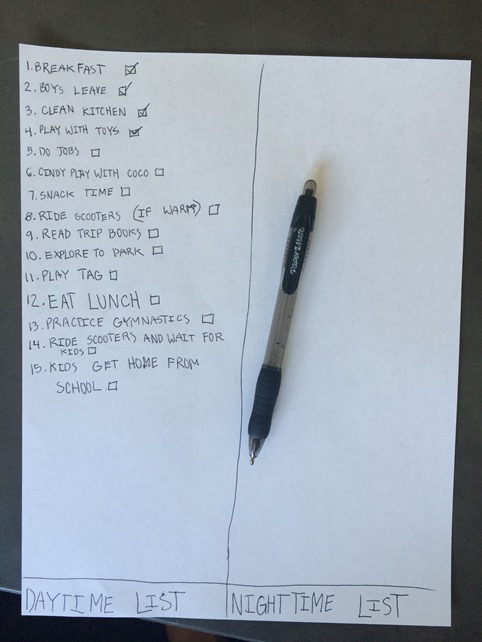 1. BREAKFAST
2. BOYS LEAVE
3. CLEAN KITCHEN
4. PLAY WITH TOYS
5. DO JOBS
6. CINDY PLAY WITH COCO
7. SNACK TIME
8. RIDE SCOOTERS (IF WARM)
9. READ TRIP BOOKS
10. EXPLORE TO PARK
11. PLAY TAG
12. EAT LUNCH
13. PRACTICE GYMNASTICS
14. RIDE SCOOTERS AND WAIT FOR
KIDS
15. KIDS GET HOME FROM
SCHOOL
Paper Mate
DAYTIME LIST
NIGHTTIME LIST